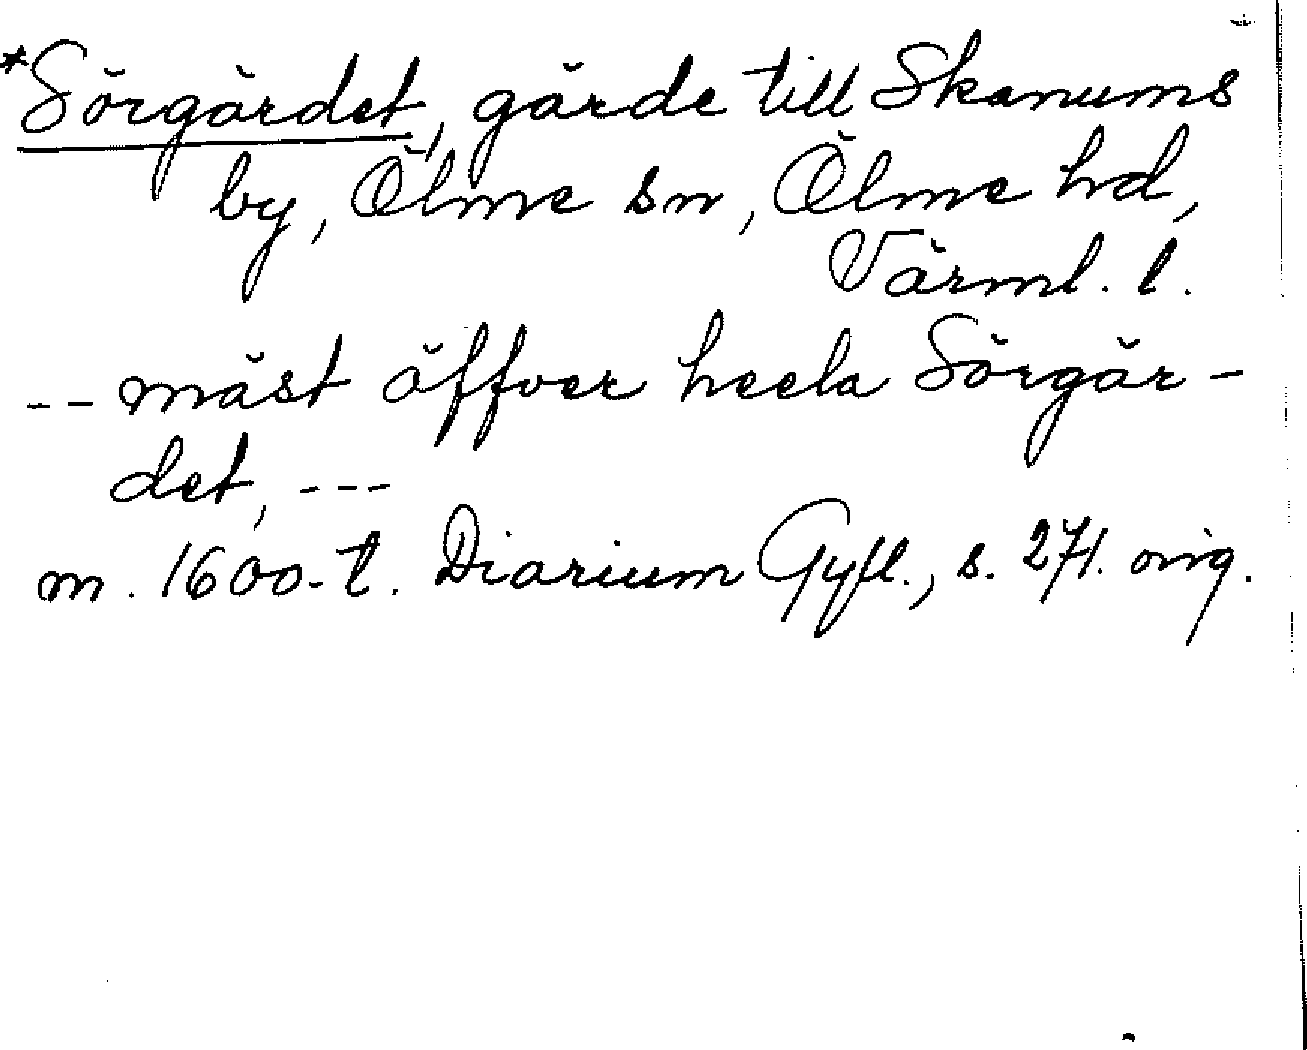 *Sörgärdet, gärde till Skanums
by, Ölme sn, Ölme hd,
Värml. l.
-- mäst öffver heela Sörgär-
det, ---
m. 1600-t. Diarium Gyll., s. 271. orig.